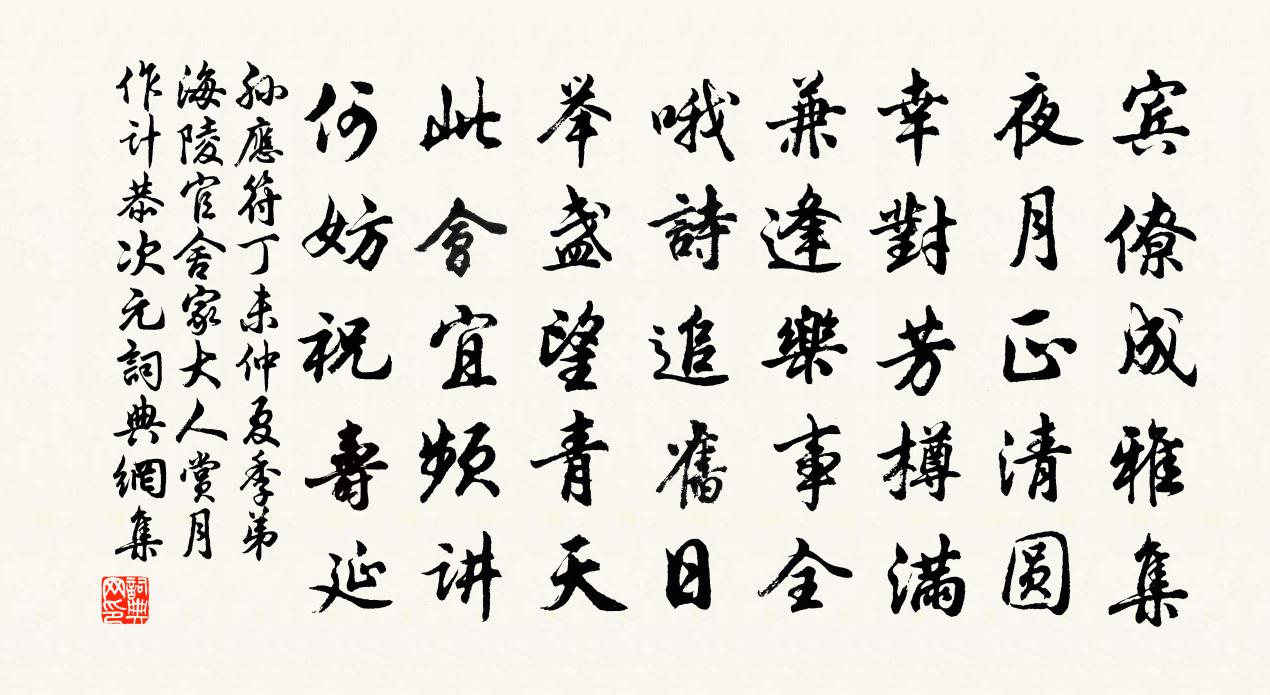 宾僚成雅集
夜月正清圆
幸對芳樽满
兼逢樂事全
哦詩追舊日
举盏望青天
此會宜频讲
何妨祝壽延
孙應符丁未仲夏季弟
海陵官舍家大人赏月
作计恭次元詞典網集
詞典
网印